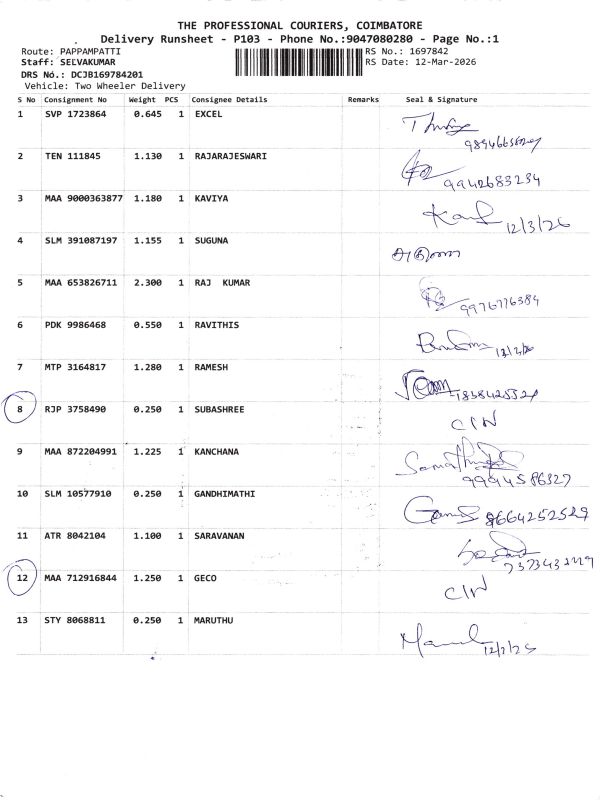 THE PROFESSIONAL COURIERS, COIMBATORE
Delivery Runsheet - P103 - Phone No.:9047080280 - Page No.:1
Route: PAPPAMPATTI RS No.: 1697842
Staff: SELVAKUMAR RS Date: 12-Mar-2026
DRS No.: DCJB169784201
Vehicle: Two Wheeler Delivery
S No Consignment No Weight PCS Consignee Details Remarks Seal & Signature
1 SVP 1723864 0.645 1 EXCEL
2 TEN 111845 1.130 1 RAJARAJESWARI
9942683234
3 MAA 9000363877 1.180 1 KAVIYA
12/3/26
4 SLM 391087197 1.155 1 SUGUNA
5 MAA 653826711 2.300 1 RAJ KUMAR
9976776384
6 PDK 9986468 0.550 1 RAVITHIS
7 MTP 3164817 1.280 1 RAMESH
8 RJP 3758490 0.250 1 SUBASHREE
C/N
9 MAA 872204991 1.225 1 KANCHANA
9994586327
10 SLM 10577910 0.250 1 GANDHIMATHI
8664252529
11 ATR 8042104 1.100 1 SARAVANAN
12 MAA 712916844 1.250 1 GECO
C/N
13 STY 8068811 0.250 1 MARUTHU